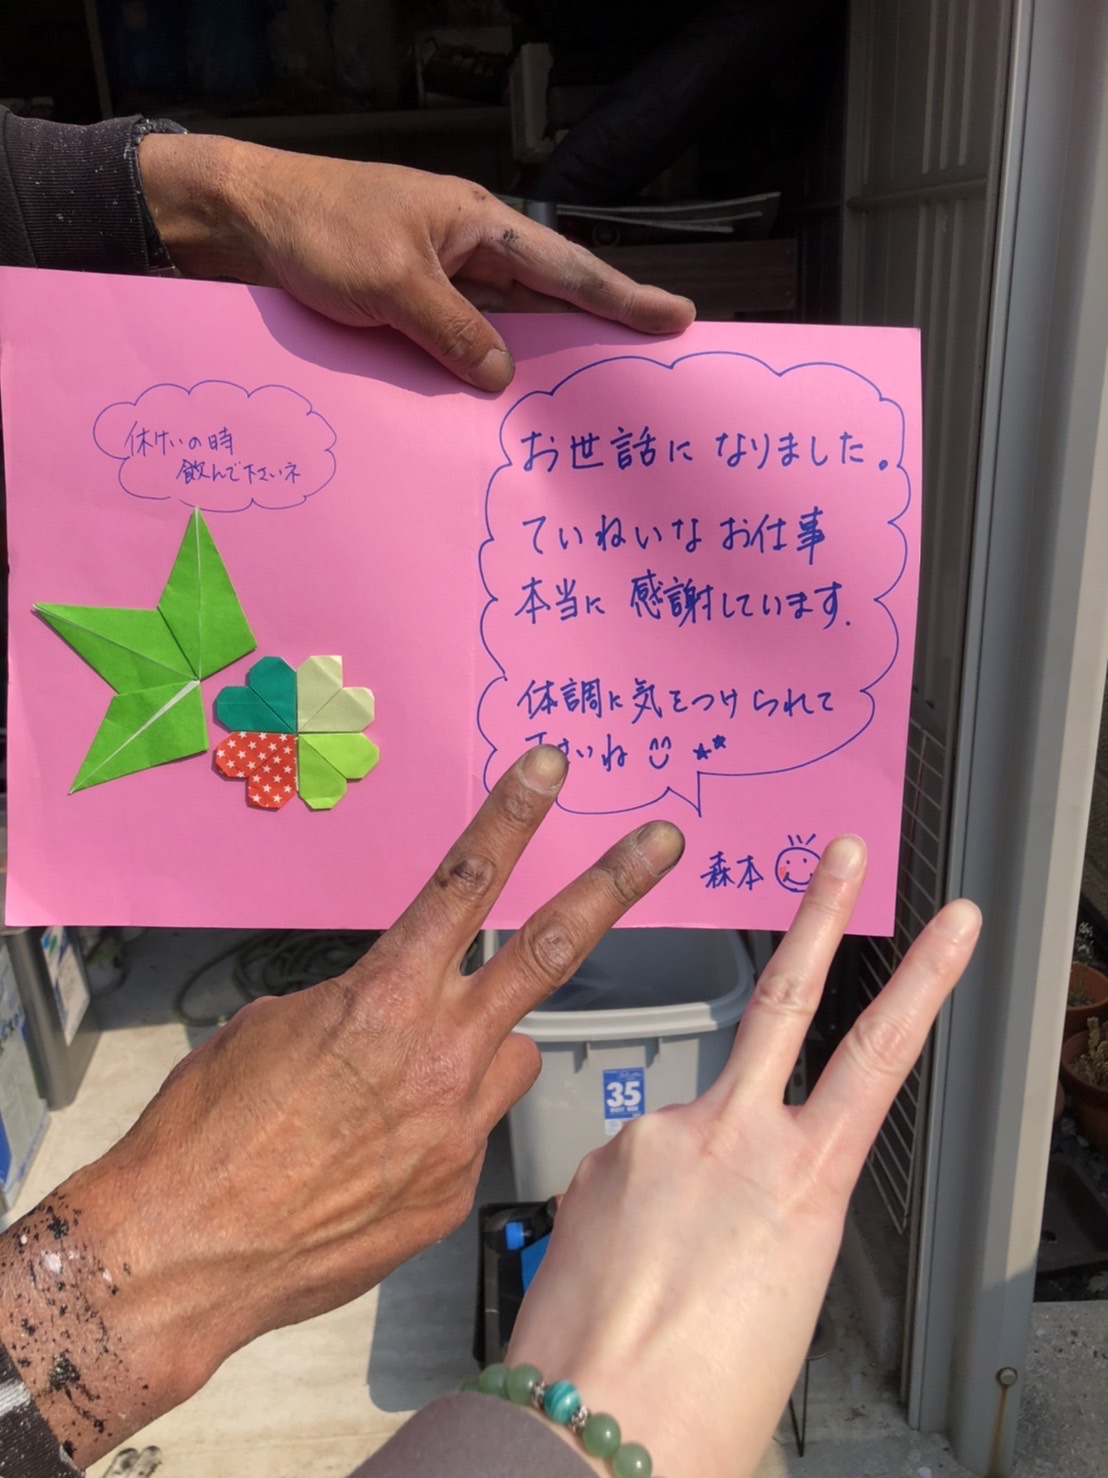 休けいの時
飲んで下さいネ
お世話になりました。
ていねいなお仕事
本当に感謝しています.
体調に気をつけられて
下さいね
森本
35